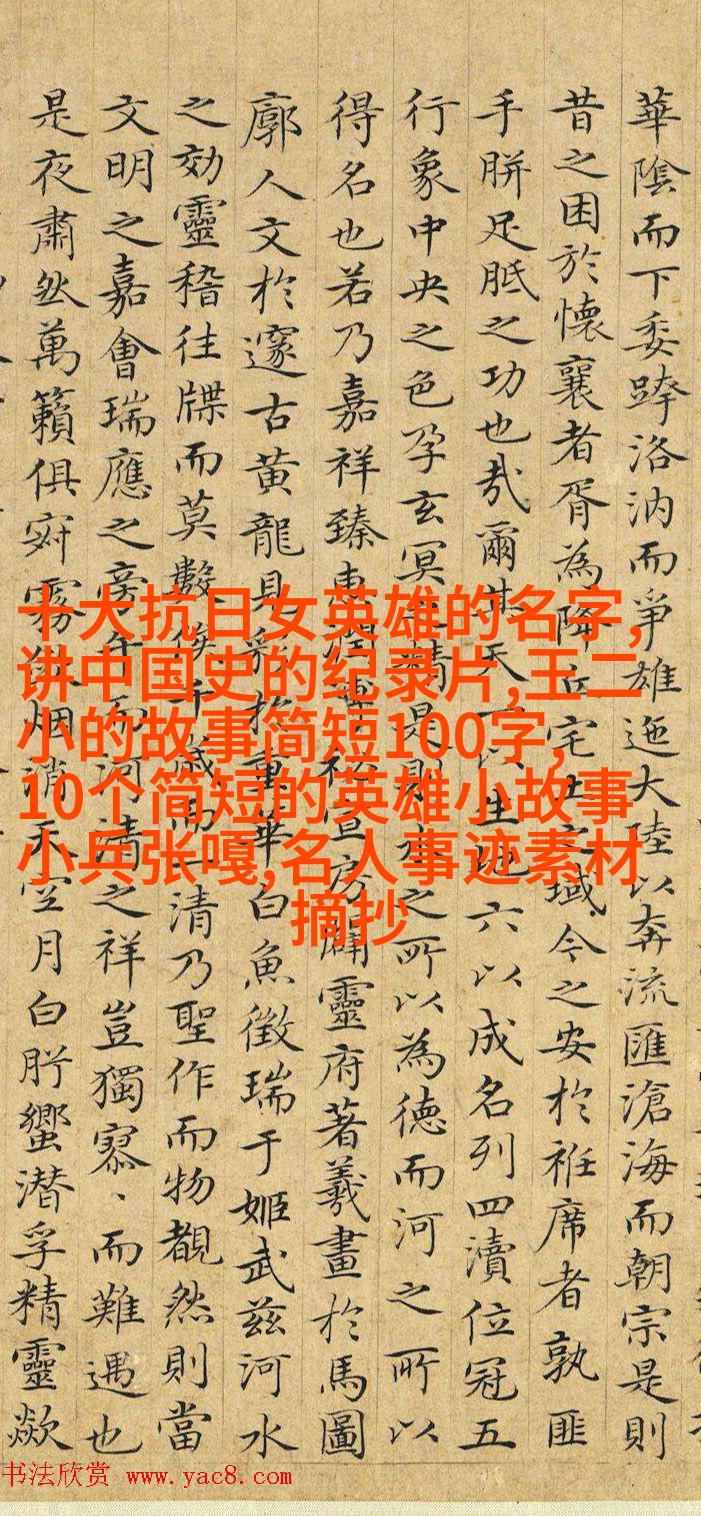 華陰而下委跨洛汭而爭雄迤大陸以奔流匯滄海而朝宗是則
昔之困於懷襄者胥為降丘宅之域今之安於袵席者孰匪
手胼足胝之功也哉爾其天一以生地六以成名列四瀆位冠五
行象中央之色孕玄冥之精是則水之所以為德而河之所以
得名也若乃嘉祥臻惠秘宣房闢靈府著羲畫於馬圖
廓人文於邃古黃龍見彩於重華白魚徵瑞于姬武茲河水
之効靈稽往牒而莫數俟千歲而一清乃聖作而物覩然則當
文明之嘉會瑞應之旁午而河清之祥豈獨寡、而難遇也
是夜肅然萬籟俱寂霧烟消天空月白肹蠁潛孚精靈歘
十大抗日女英雄的名字,
讲中国史的纪录片,王二
小的故事简短100字,
10个简短的英雄小故事
小兵张嘎,名人事迹素材
摘抄
书法欣赏 www.yac8.com